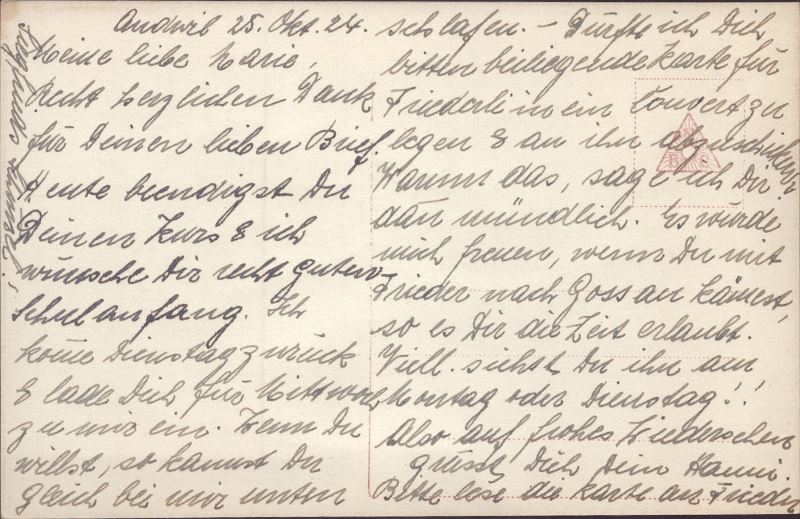 Andwil 25. Okt. 24.
Meine liebe Marie,
Recht herzlichen Dank
für Deinen lieben Brief.
Heute beendigst Du
Deinen Kurs & ich
wünsche Dir recht guten
Schulanfang. Ich
kom̄e Dienstag zurück
& lade Dich für Mittwoch
zu mir ein. Wenn Du
willst, so kannst Du
gleich bei mir unten
schlafen. – Dürfte ich Dich
bitten beiliegende Karte für
Friederli in ein Couvert zu
legen & an ihn abzuschicken.
Warum das, sage ich Dir
dan mündlich. Es würde
mich freuen, wenn Du mit
Frieder nach Gossau kämest,
so es Dir die Zeit erlaubt.
Viell. siehst Du ihn am
Montag oder Dienstag!!
Also auf frohes Wiedersehen
grüsst Dich Dein Hanni.
Bitte lese die Karte an Frieder